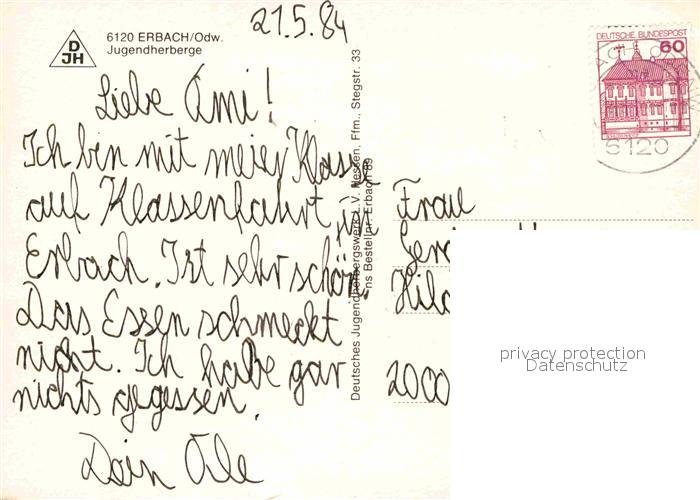 21.5.84
DJH
6120 ERBACH/Odw.
Jugendherberge
Liebe Omi!
Ich bin mit meier Klasse
auf Klassenfahrt in
Erbach. Ist sehr schön.
Das Essen schmeckt
nicht. Ich habe gar
nichts gegessen.
Dein Ole
Deutsches Jugendherbergswerk L.V. Hessen, Ffm., Stegstr. 33
ns Bestellnr. Erbach 89
DEUTSCHE BUNDESPOST
60
6120
Frau
2000
privacy protection
Datenschutz